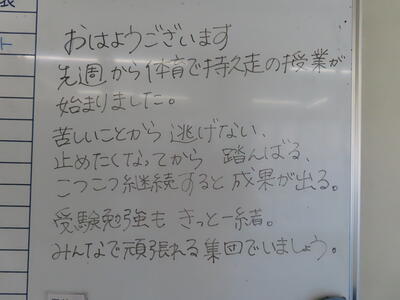 おはようございます
先週から体育で持久走の授業が
始まりました。
苦しいことから逃げない、
止めたくなってから踏んばる、
こつこつ継続すると成果が出る。
受験勉強もきっと一緒。
みんなで頑張れる集団でいましょう。